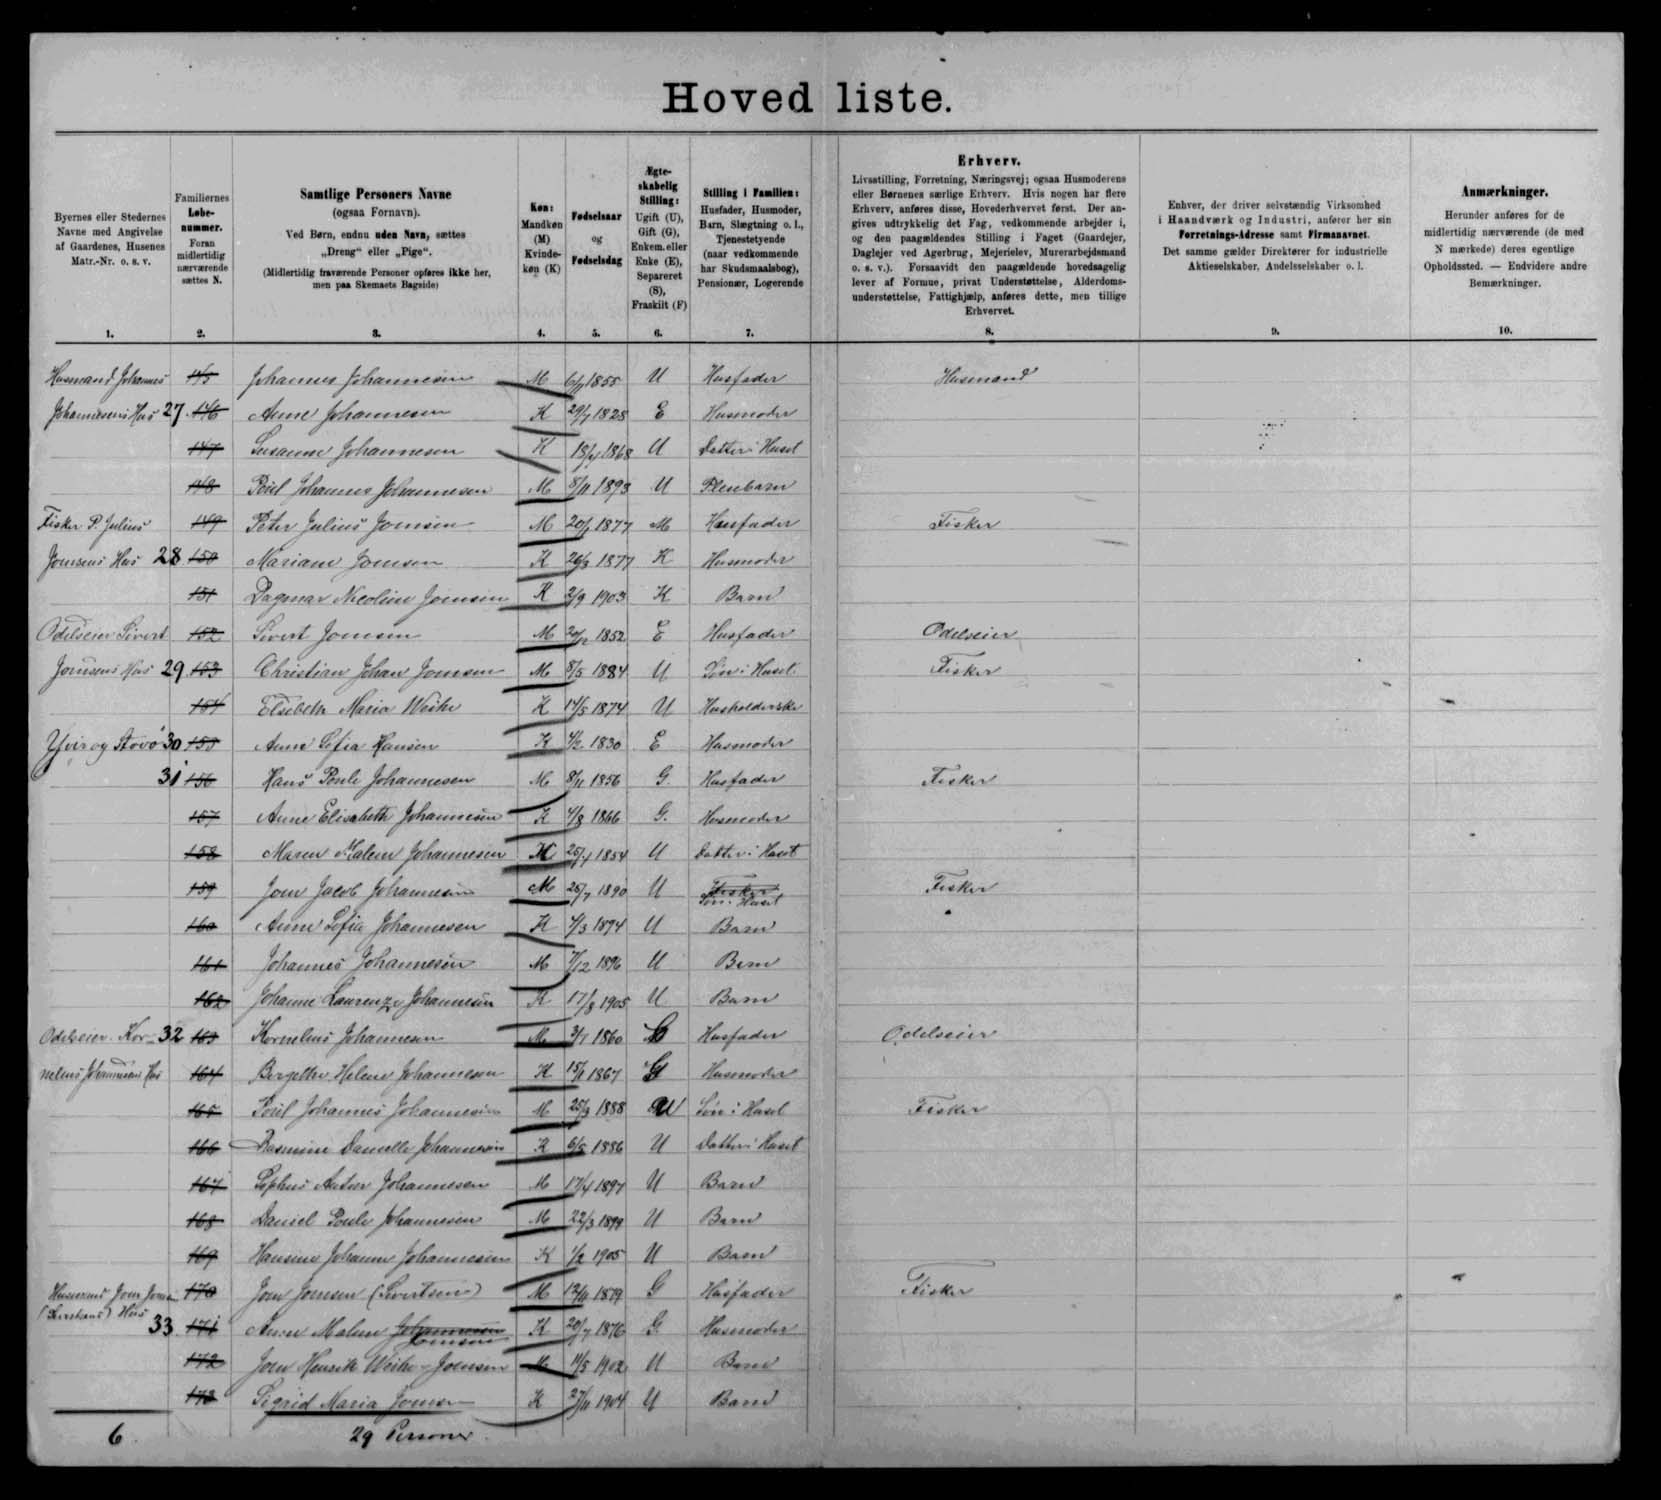 Hovedliste.
Byernes eller Stedernes
Navne med Angivelse
af Gaardenes, Husenes
Matr.-Nr. o. s. v.
1.
Familiernes
Løbe-
nummer.
Foran
midlertidig
nærværende
sættes N.
2.
Samtlige Personers Navne
(ogsaa Fornavn).
Ved Børn, endnu uden Navn, sættes
„Dreng“ eller „Pige“.
(Midlertidig fraværende Personer opføres ikke her,
men paa Skemaets Bagside)
3.
Køn:
Mandkøn
(M)
Kvinde-
køn (K)
4.
Fødselsaar
og
Fødselsdag
5.
Ægte-
skabelig
Stilling:
Ugift (U),
Gift (G),
Enkem. eller
Enke (E),
Separeret
(S),
Fraskilt (F)
6.
Stilling i Familien:
Husfader, Husmoder,
Barn, Slægtning o. l.,
Tjenestetyende
(naar vedkommende
har Skudsmaalsbog),
Pensionær, Logerende
7.
Erhverv.
Livsstilling, Forretning, Næringsvej; ogsaa Husmoderens
eller Børnenes særlige Erhverv. Hvis nogen har flere
Erhverv, anføres disse, Hovederhvervet først. Der an-
gives udtrykkelig det Fag, vedkommende arbejder i,
og den paagældendes Stilling i Faget (Gaardejer,
Daglejer ved Agerbrug, Mejerielev, Murerarbejdsmand
o. s. v.). Forsaavidt den paagældende hovedsagelig
lever af Formue, privat Understøttelse, Alderdoms-
understøttelse, Fattighjælp, anføres dette, men tillige
Erhvervet.
8.
Enhver, der driver selvstændig Virksomhed
i Haandværk og Industri, anfører her sin
Forretnings-Adresse samt Firmanavnet.
Det samme gælder Direktører for industrielle
Aktieselskaber, Andelsselskaber o. l.
9.
Anmærkninger.
Herunder anføres for de
midlertidig nærværende (de med
N mærkede) deres egentlige
Opholdssted. — Endvidere andre
Bemærkninger.
10.
Husmand Johannes 145 Johannes Johannesen M 1855 U Husfader Husmand
Johannesens Hus 27 146 Anne Johannesen K 29/7 1828 E Husmoder
147 Susanne Johannesen K 1868 U Datter i Huset
148 Poul Johannes Johannesen M 8/11 1893 U Pleiebarn
Fisker P. Julius 149 Peter Julius Joensen M 1877 M Husfader Fisker
Joensens Hus 28 150 Mariane Joensen K 26/3 1877 K Husmoder
151 Dagmar Nicoline Joensen K 2/9 1903 K Barn
Odelseier Sivert 152 Sivert Joensen M 1852 E Husfader Odelseier
Joensens Hus 29 153 Christian Johan Joensen M 8/5 1884 U Søn i Huset Fisker
154 Elsebeth Maria Weihe K 14/5 1874 U Husholderske
30 155 Anne Sofia Hansen K 4/2 1830 E Husmoder
31 156 Hans Poule Johannesen M 8/11 1856 G. Husfader Fisker
157 Anne Elisabeth Johannesen K 4/8 1866 G. Husmoder
158 Maren Malene Johannesen K 1854 U Datter i Huset
159 Joen Jacob Johannesen M 25/7 1890 U Fisker Fisker
Søn i Huset
160 Anne Sofia Johannesen K 4/3 1894 U Barn
161 Johannes Johannesen M 7/12 1896 U Barn
162 Johanne Johannesen K 17/8 1905 U Barn
Odelseier Kor- 32 163 Kornelius Johannesen M 3/1 1860 G Husfader Odelseier
nelius Johannesens Hus 164 Helene Johannesen K 1867 G Husmoder
165 Poul Johannes Johannesen M 25/3 1888 U Søn i Huset Fisker
166 Rasmine Danielle Johannesen K 6/5 1886 U Datter i Huset
167 Sophus Anton Johannesen M 17/4 1897 U Barn
168 Daniel Poule Johannesen M 22/3 1899 U Barn
169 Hansine Johanne Johannesen K 1/2 1905 U Barn
Husmand Joen Joensen 170 Joen Joensen (Sivertsen) M 12/11 1879 G Husfader Fisker
Hus 33 171 Anne Malene Johannesen K 20/7 1876 G. Husmoder
Joensen
172 Joen Henrik Weihe Joensen M 11/5 1902 U Barn
173 Sigrid Maria Joensen K 27/11 1904 U Barn
6 29 Personer.